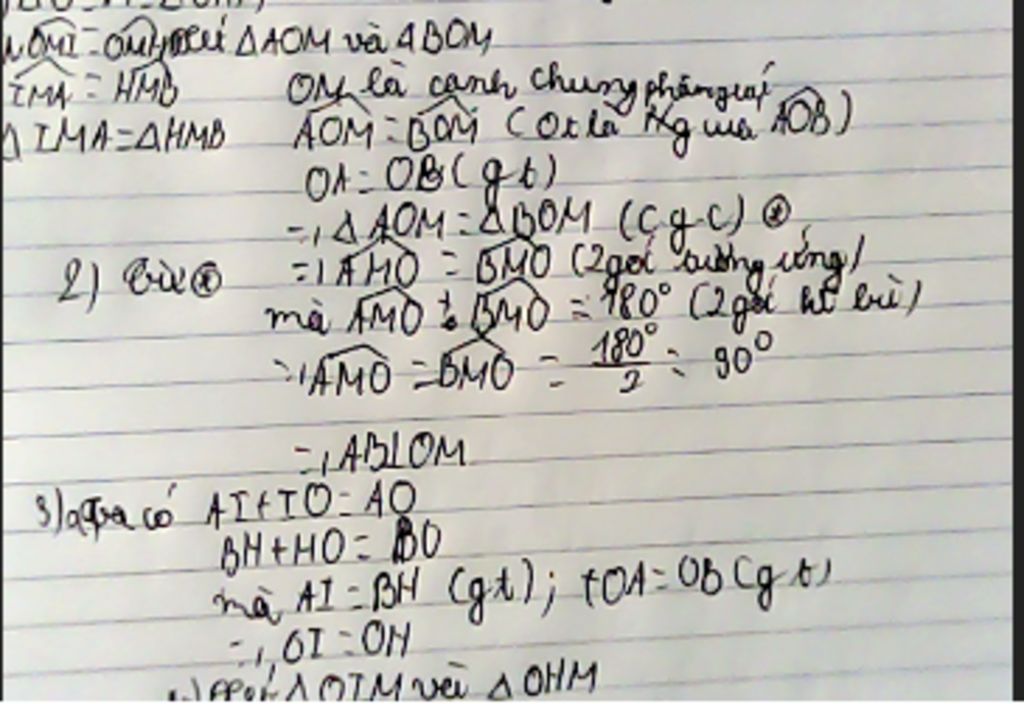 OMI = OMH xét ΔAOM và ΔBOM
IMA = HMB OM là cạnh chung phân giác
ΔIMA = ΔHMB AOM = BOM (Ot là của AOB)
OA = OB (gt)
=> ΔAOM = ΔBOM (c g c) ⊛
2) từ ⊛ => AMO = BMO (2 góc tương ứng)
mà AMO + BMO = 180° (2 góc kề bù)
=> AMO = BMO = 180°/2 = 90°
=> AB⊥OM
3) a, Ta có AI + IO = AO
BH + HO = BO
mà AI = BH (gt); +OA = OB (gt)
=> OI = OH
ΔOIM và ΔOHM